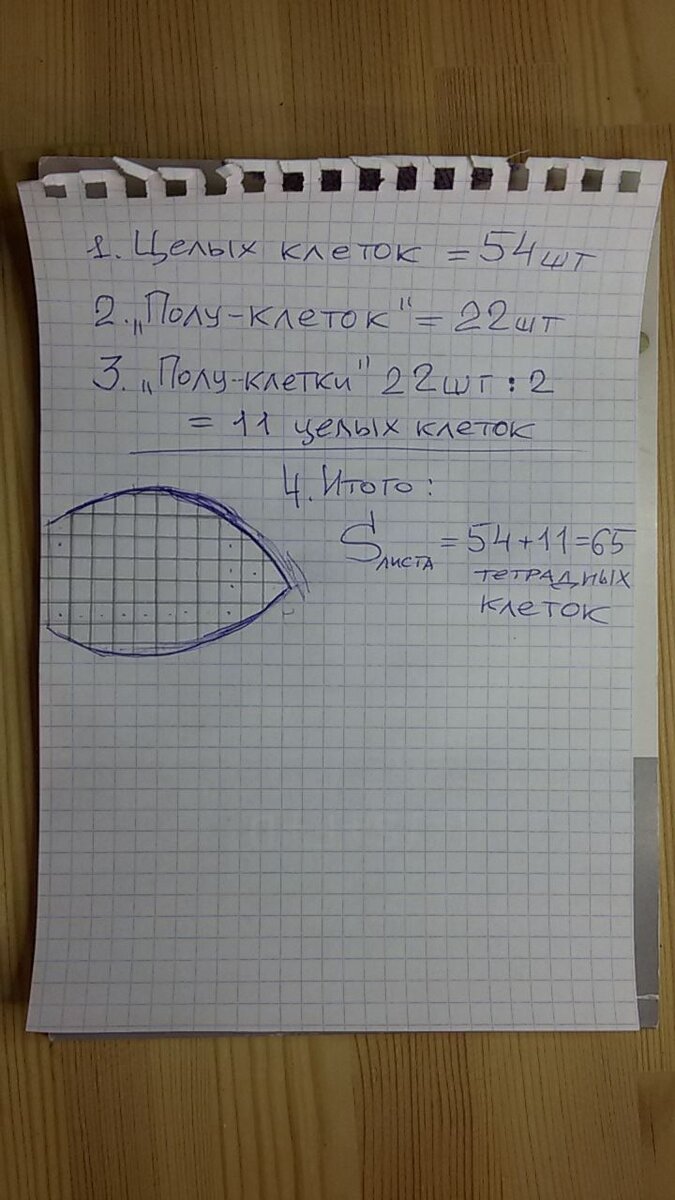 1. Целых клеток = 54шт
2. „Полу-клеток" = 22шт
3. „Полу-клетки" 22шт : 2
= 11 целых клеток
4. Итого:
Sлиста = 54+11=65
тетрадных
клеток